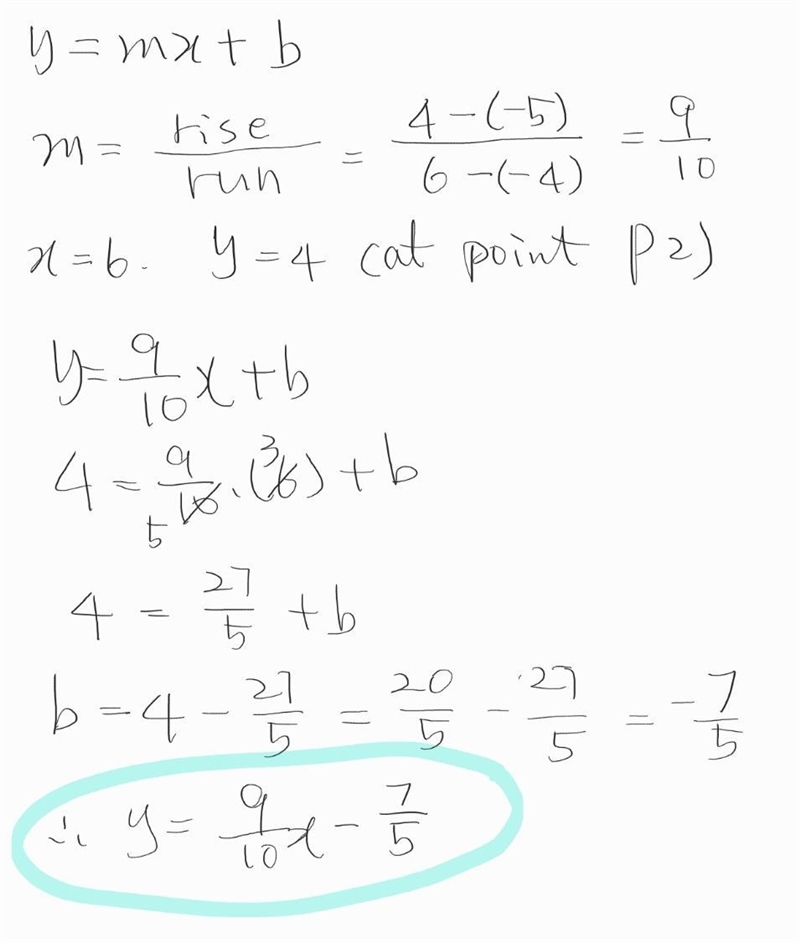 y = mx + b
m = rise/run = 4-(-5)/6-(-4) = 9/10
x = 6. y = 4 (at point P2)
y = 9/10 x + b
4 = 9/10 5 · (6 3) + b
4 = 27/5 + b
b = 4 - 27/5 = 20/5 - 27/5 = -7/5
∴ y = 9/10 x - 7/5